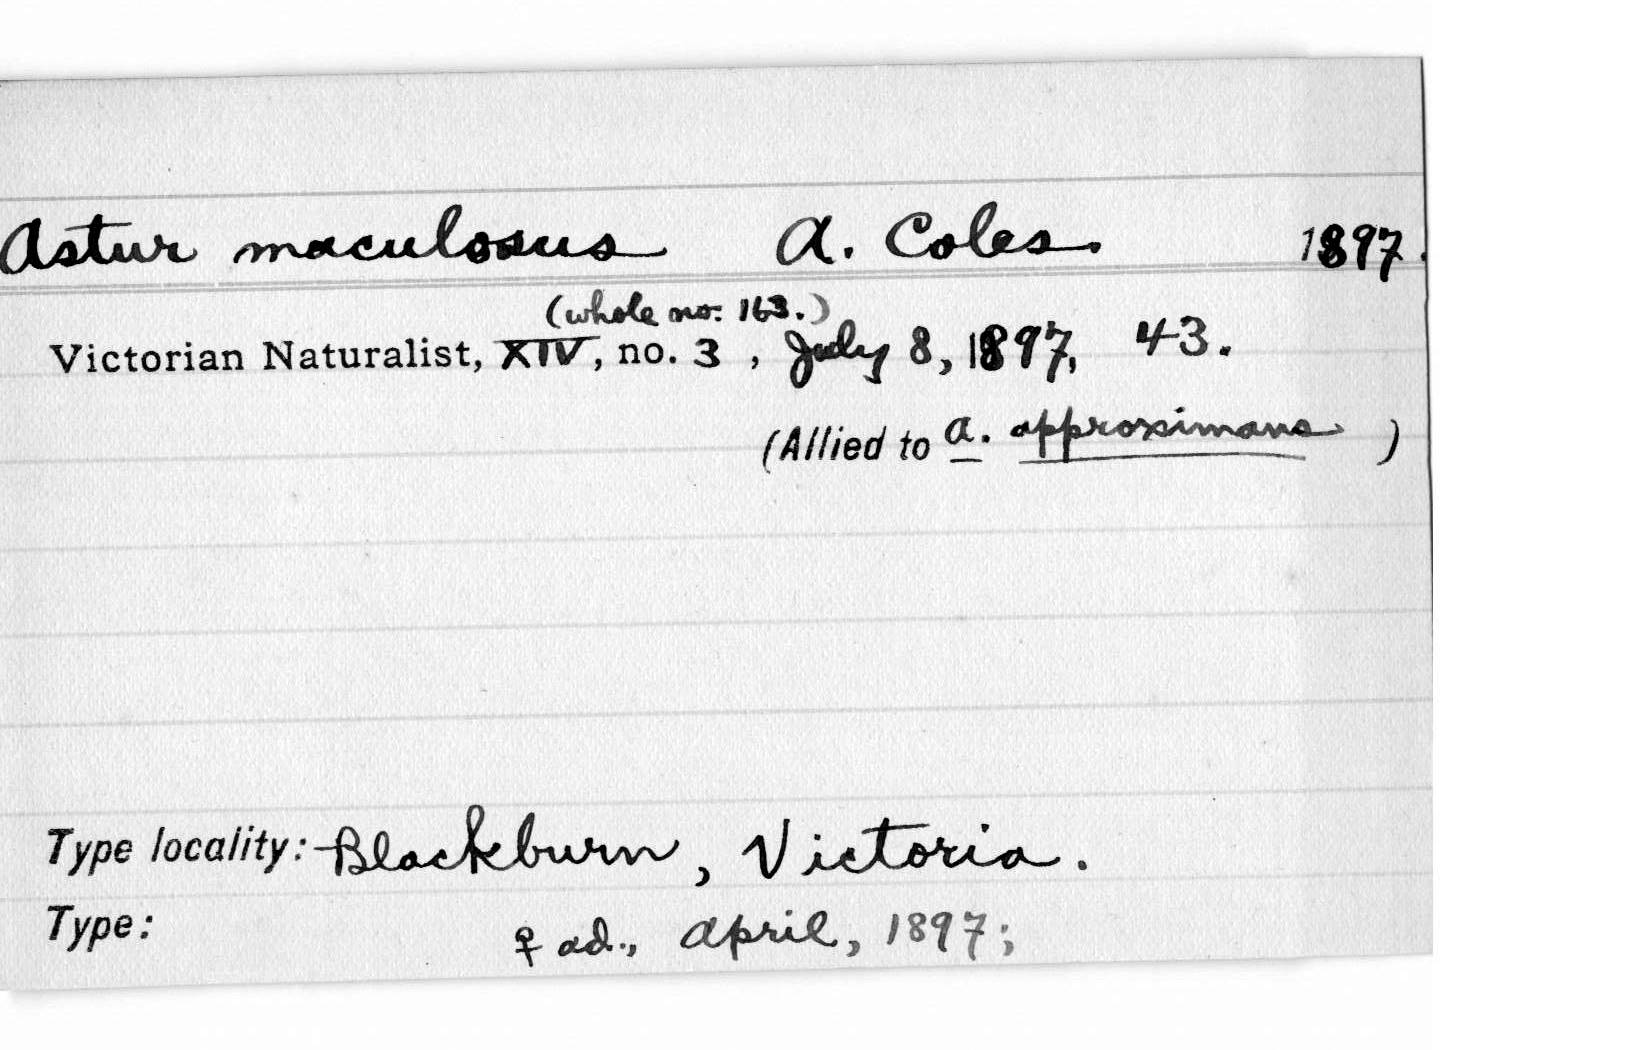 Astur maculosus A. Coles. 1897.
(whole no. 163.)
Victorian Naturalist, XIV, no. 3, July 8, 1897, 43.
(Allied to A. approximans )
Type locality: Blackburn, Victoria.
Type: ♀ ad., April, 1897;